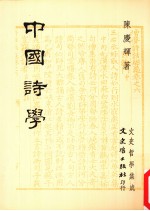 陳慶輝著
中國詩學
文史哲學集成
文史哲出版社印行